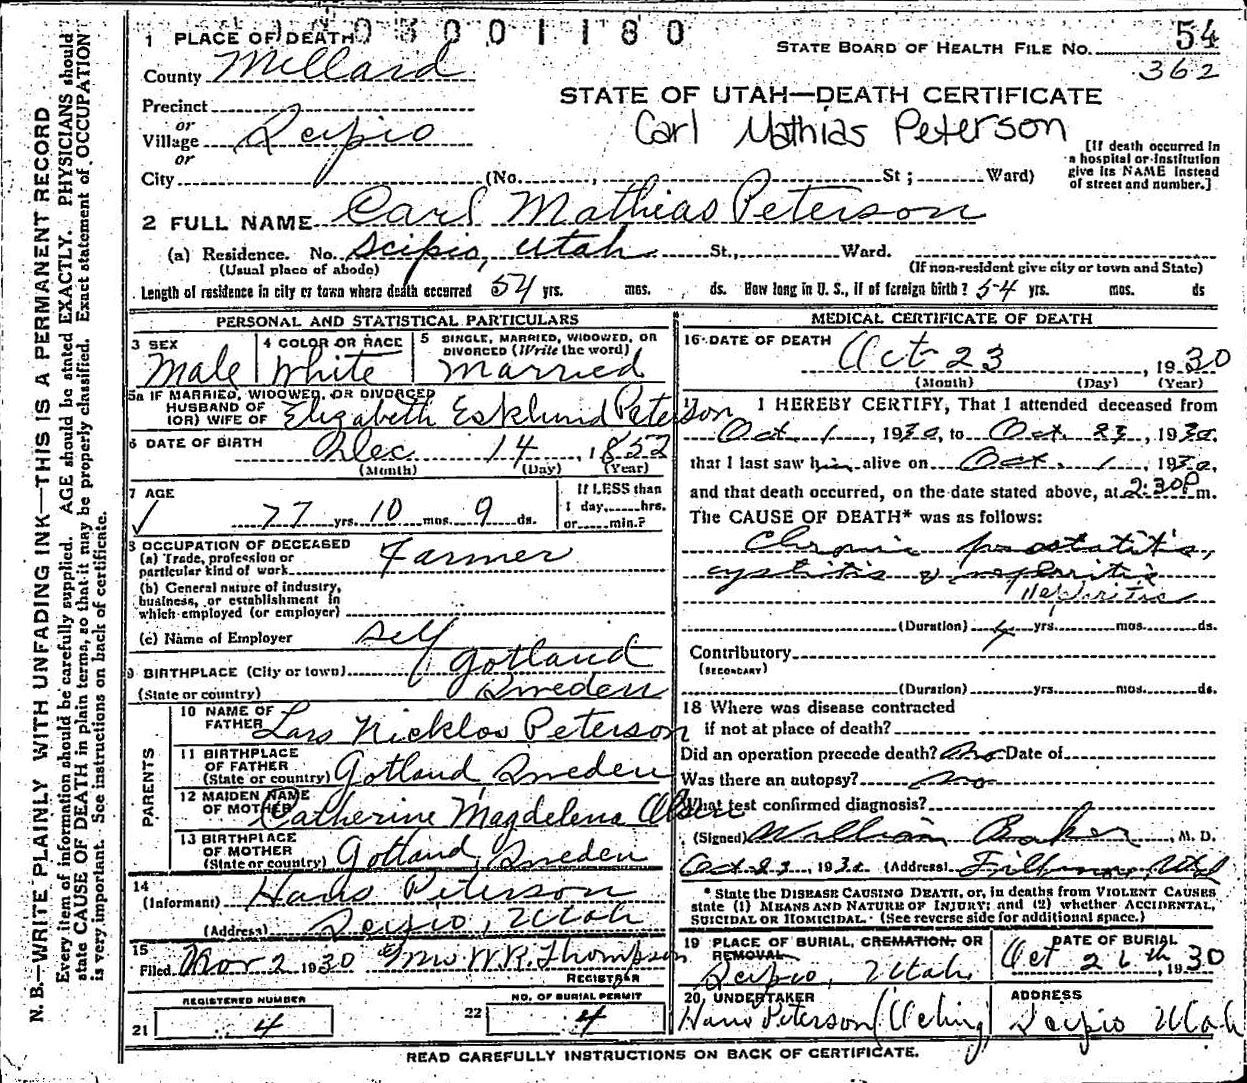 0 3 0 0 1 1 8 0
1 PLACE OF DEATH
STATE BOARD OF HEALTH FILE NO. 54
362
County Millard
STATE OF UTAH—DEATH CERTIFICATE
Carl Mathias Peterson
Precinct
or
Village Scipio
or
City (No. , St ; Ward)
[If death occurred in
a hospital or institution
give its NAME instead
of street and number.]
2 FULL NAME Carl Mathias Peterson
(a) Residence. No. Scipio, Utah St., Ward.
(Usual place of abode) (If non-resident give city or town and State)
Length of residence in city or town where death occurred 54 yrs. mos. ds. How long in U. S., if of foreign birth? 54 yrs. mos. ds
PERSONAL AND STATISTICAL PARTICULARS
3 SEX Male
4 COLOR OR RACE White
5 SINGLE, MARRIED, WIDOWED, OR
DIVORCED (Write the word)
Married
5a IF MARRIED, WIDOWED, OR DIVORCED
HUSBAND OF
(OR) WIFE OF Elizabeth Esklund Peterson
6 DATE OF BIRTH Dec 14, 1852
(Month) (Day) (Year)
7 AGE
77 yrs. 10 mos. 9 ds.
If LESS than
1 day, hrs.
or min.?
8 OCCUPATION OF DECEASED
(a) Trade, profession or
particular kind of work Farmer
(b) General nature of industry,
business, or establishment in
which employed (or employer)
(c) Name of Employer self
9 BIRTHPLACE (City or town) Gotland
(State or country) Sweden
PARENTS
10 NAME OF
FATHER Lars Nicklos Peterson
11 BIRTHPLACE
OF FATHER
(State or country) Gotland Sweden
12 MAIDEN NAME
OF MOTHER Catherine Magdelena Olsen
13 BIRTHPLACE
OF MOTHER
(State or country) Gotland, Sweden
14
(Informant) Hans Peterson
(Address) Scipio, Utah
15
Filed Nov 2 1930 Mrs W.R. Thompson
REGISTRAR
REGISTERED NUMBER
21 4
NO. OF BURIAL PERMIT
22 4
MEDICAL CERTIFICATE OF DEATH
16 DATE OF DEATH Oct 23, 1930
(Month) (Day) (Year)
17 I HEREBY CERTIFY, That I attended deceased from
Oct 1, 1930, to Oct. 23, 1930.
that I last saw him alive on Oct. 1, 1930,
and that death occurred, on the date stated above, at 2:30 P.m.
The CAUSE OF DEATH* was as follows:
Chronic prostatitis,
cystitis & nephritis
Nephritis
(Duration) yrs. mos. ds.
Contributory
(SECONDARY)
(Duration) yrs. mos. ds.
18 Where was disease contracted
if not at place of death?
Did an operation precede death? no Date of
Was there an autopsy? no
What test confirmed diagnosis?
(Signed) William Baker, M. D.
Oct 23, 1930 (Address) Fillmore, Utah
* State the DISEASE CAUSING DEATH, or, in deaths from VIOLENT CAUSES
state (1) MEANS AND NATURE OF INJURY; and (2) whether ACCIDENTAL,
SUICIDAL OR HOMICIDAL. (See reverse side for additional space.)
19 PLACE OF BURIAL, CREMATION, OR
REMOVAL
Scipio, Utah
DATE OF BURIAL
Oct 26th, 1930
20 UNDERTAKER
Hans Peterson (Acting)
ADDRESS
Scipio Utah
READ CAREFULLY INSTRUCTIONS ON BACK OF CERTIFICATE.
N. B.—WRITE PLAINLY WITH UNFADING INK—THIS IS A PERMANENT RECORD
Every item of information should be carefully supplied. AGE should be stated EXACTLY. PHYSICIANS should
state CAUSE OF DEATH in plain terms, so that it may be properly classified. Exact statement of OCCUPATION
is very important. See instructions on back of certificate.